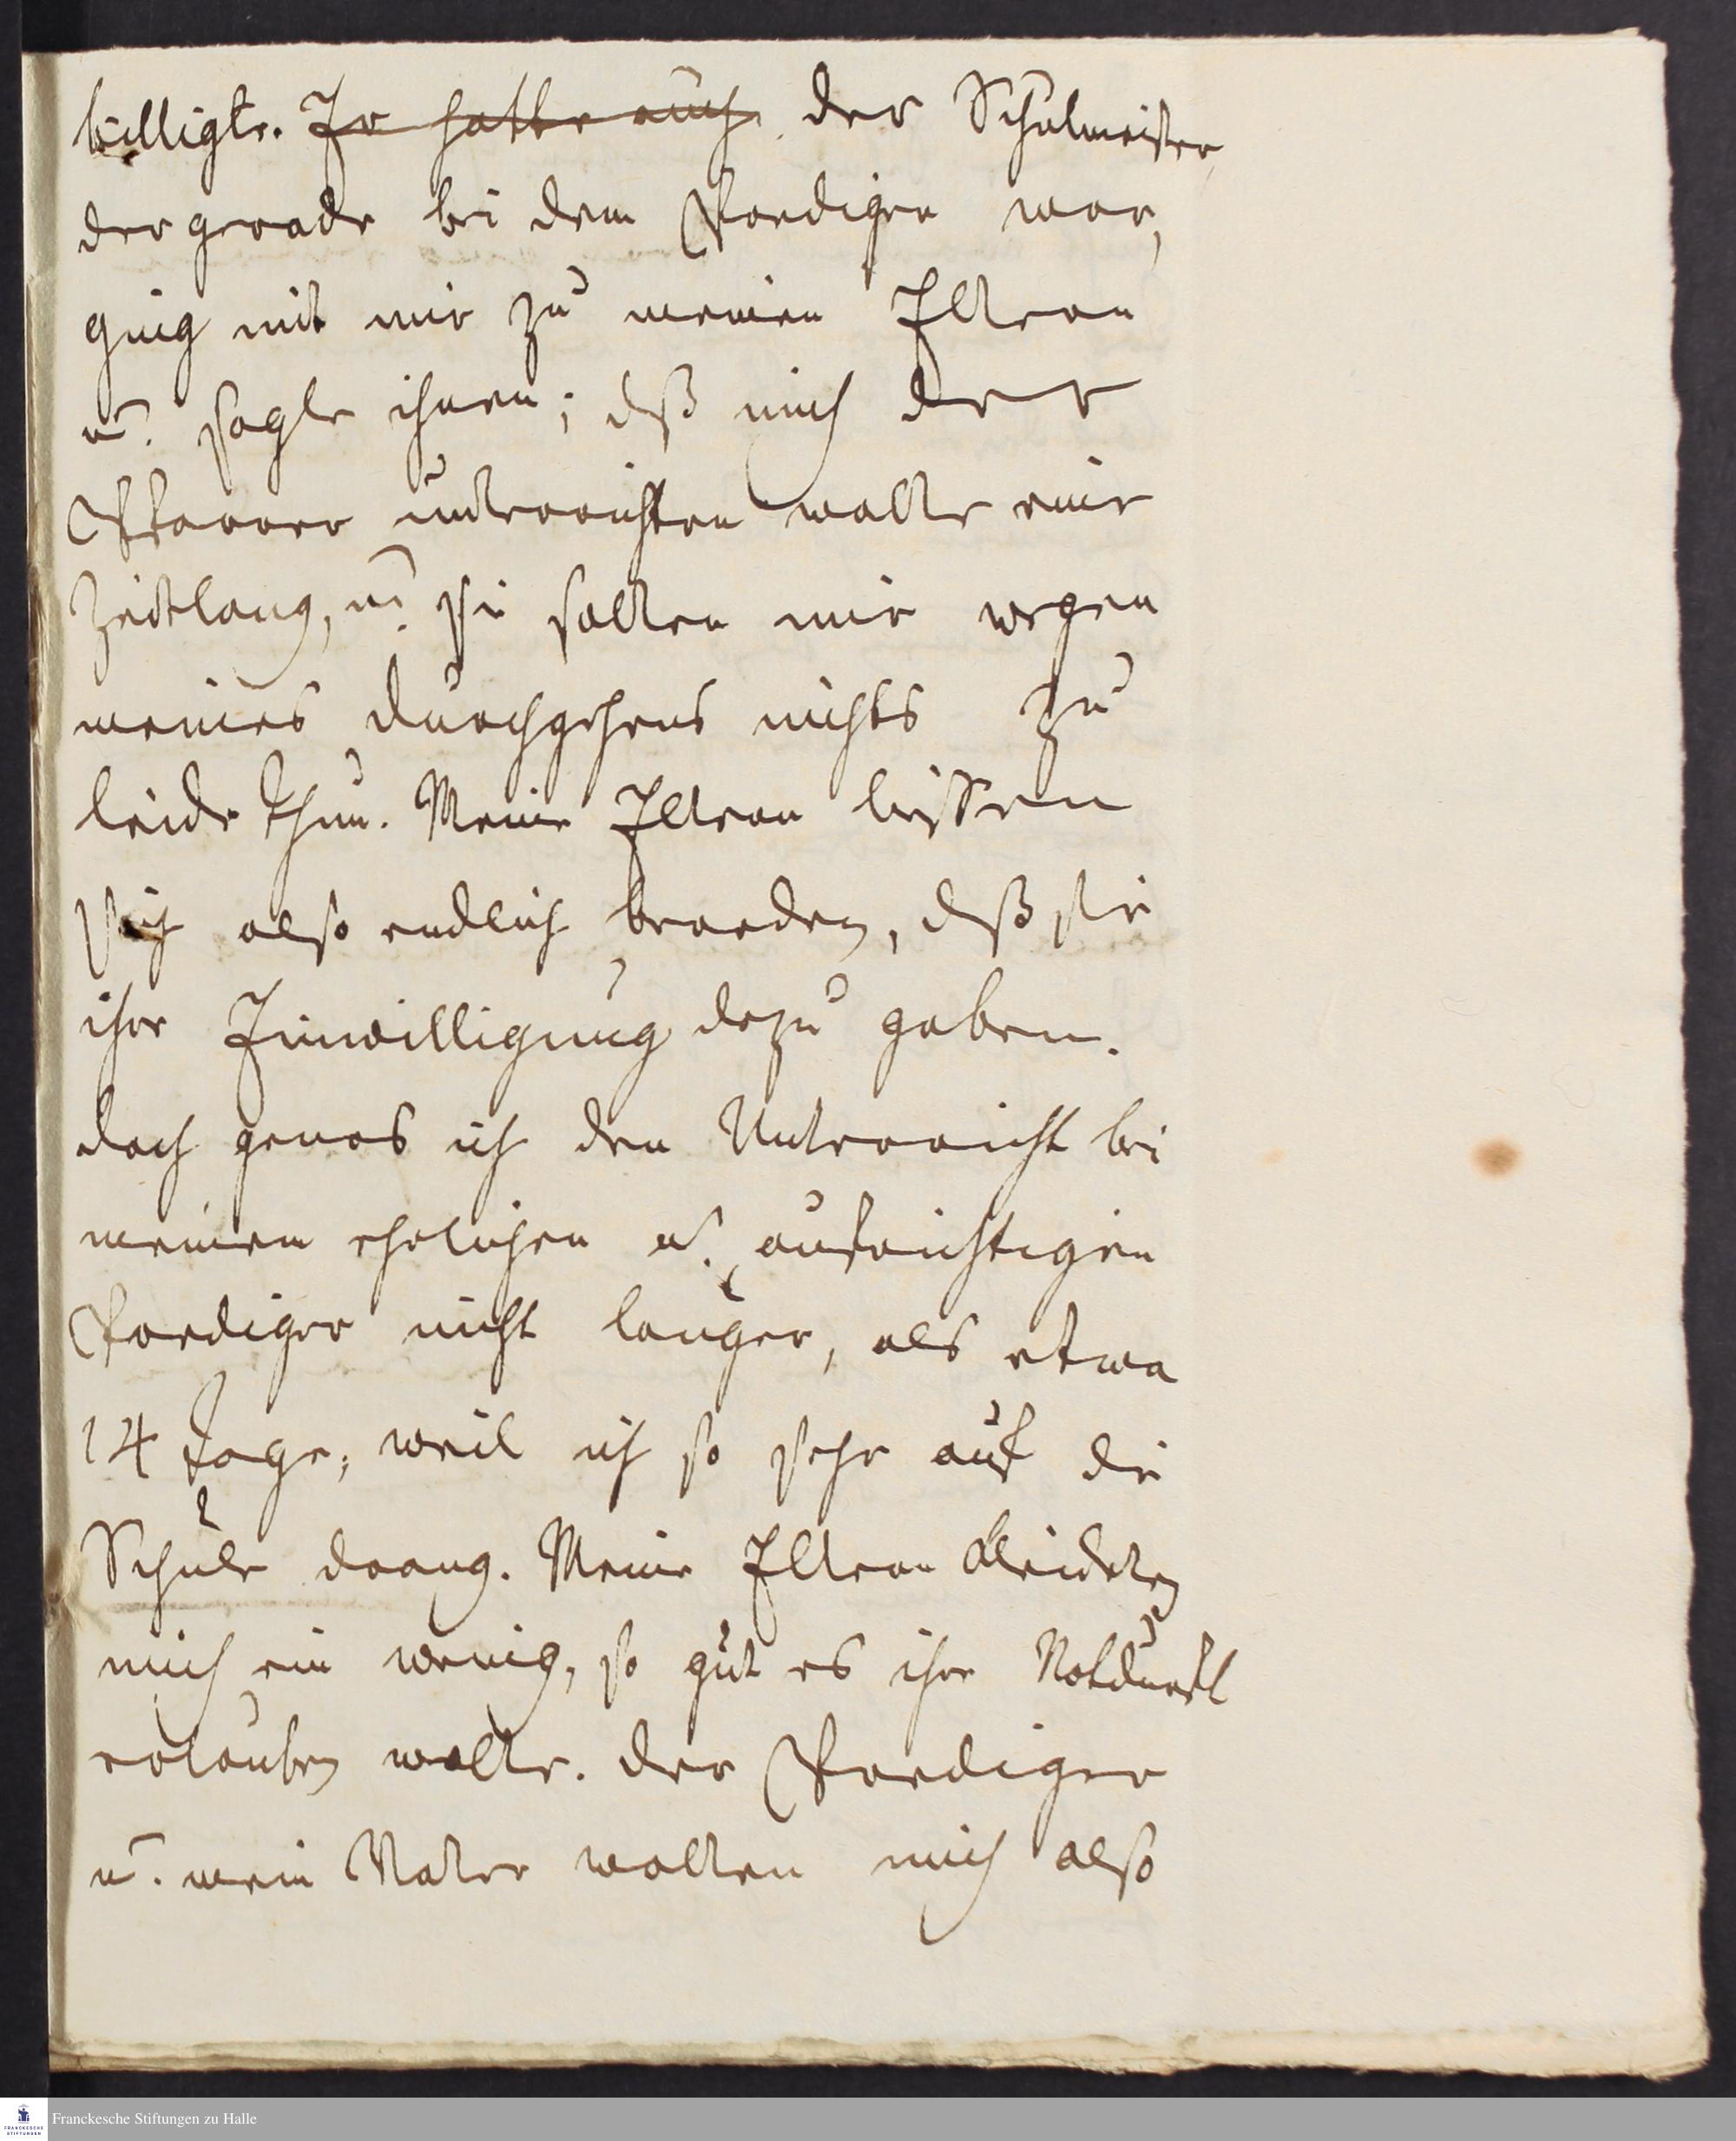 billigte. Er hatte auch der Schulmeister
der gerade bei dem Prediger war,
ging mit mir zu meinen Eltern
u. sagte ihnen; daß mich der
Pfarrer unterrichten wollte eine
Zeitlang, u. sie solten mir wegen
meines durchgehens nichts zu
leide thun. Meine Eltern liessen
sich also endlich bereden, daß sie
ihre Einwilligung dazu gaben.
doch genos ich den Unterricht bei
meinem ehrlichen u. aufrichtigen
Prediger nicht langer, als etwa
14 Tage, weil ich so sehr auf die
Schule drang. Meine Eltern kleideten
mich ein wenig, so gut es ihre Notdurft
erlauben wollte. der Prediger
u. mein Vater wolten mich also
Franckesche Stiftungen zu Halle
FRANCKESCHE
STIFTUNGEN